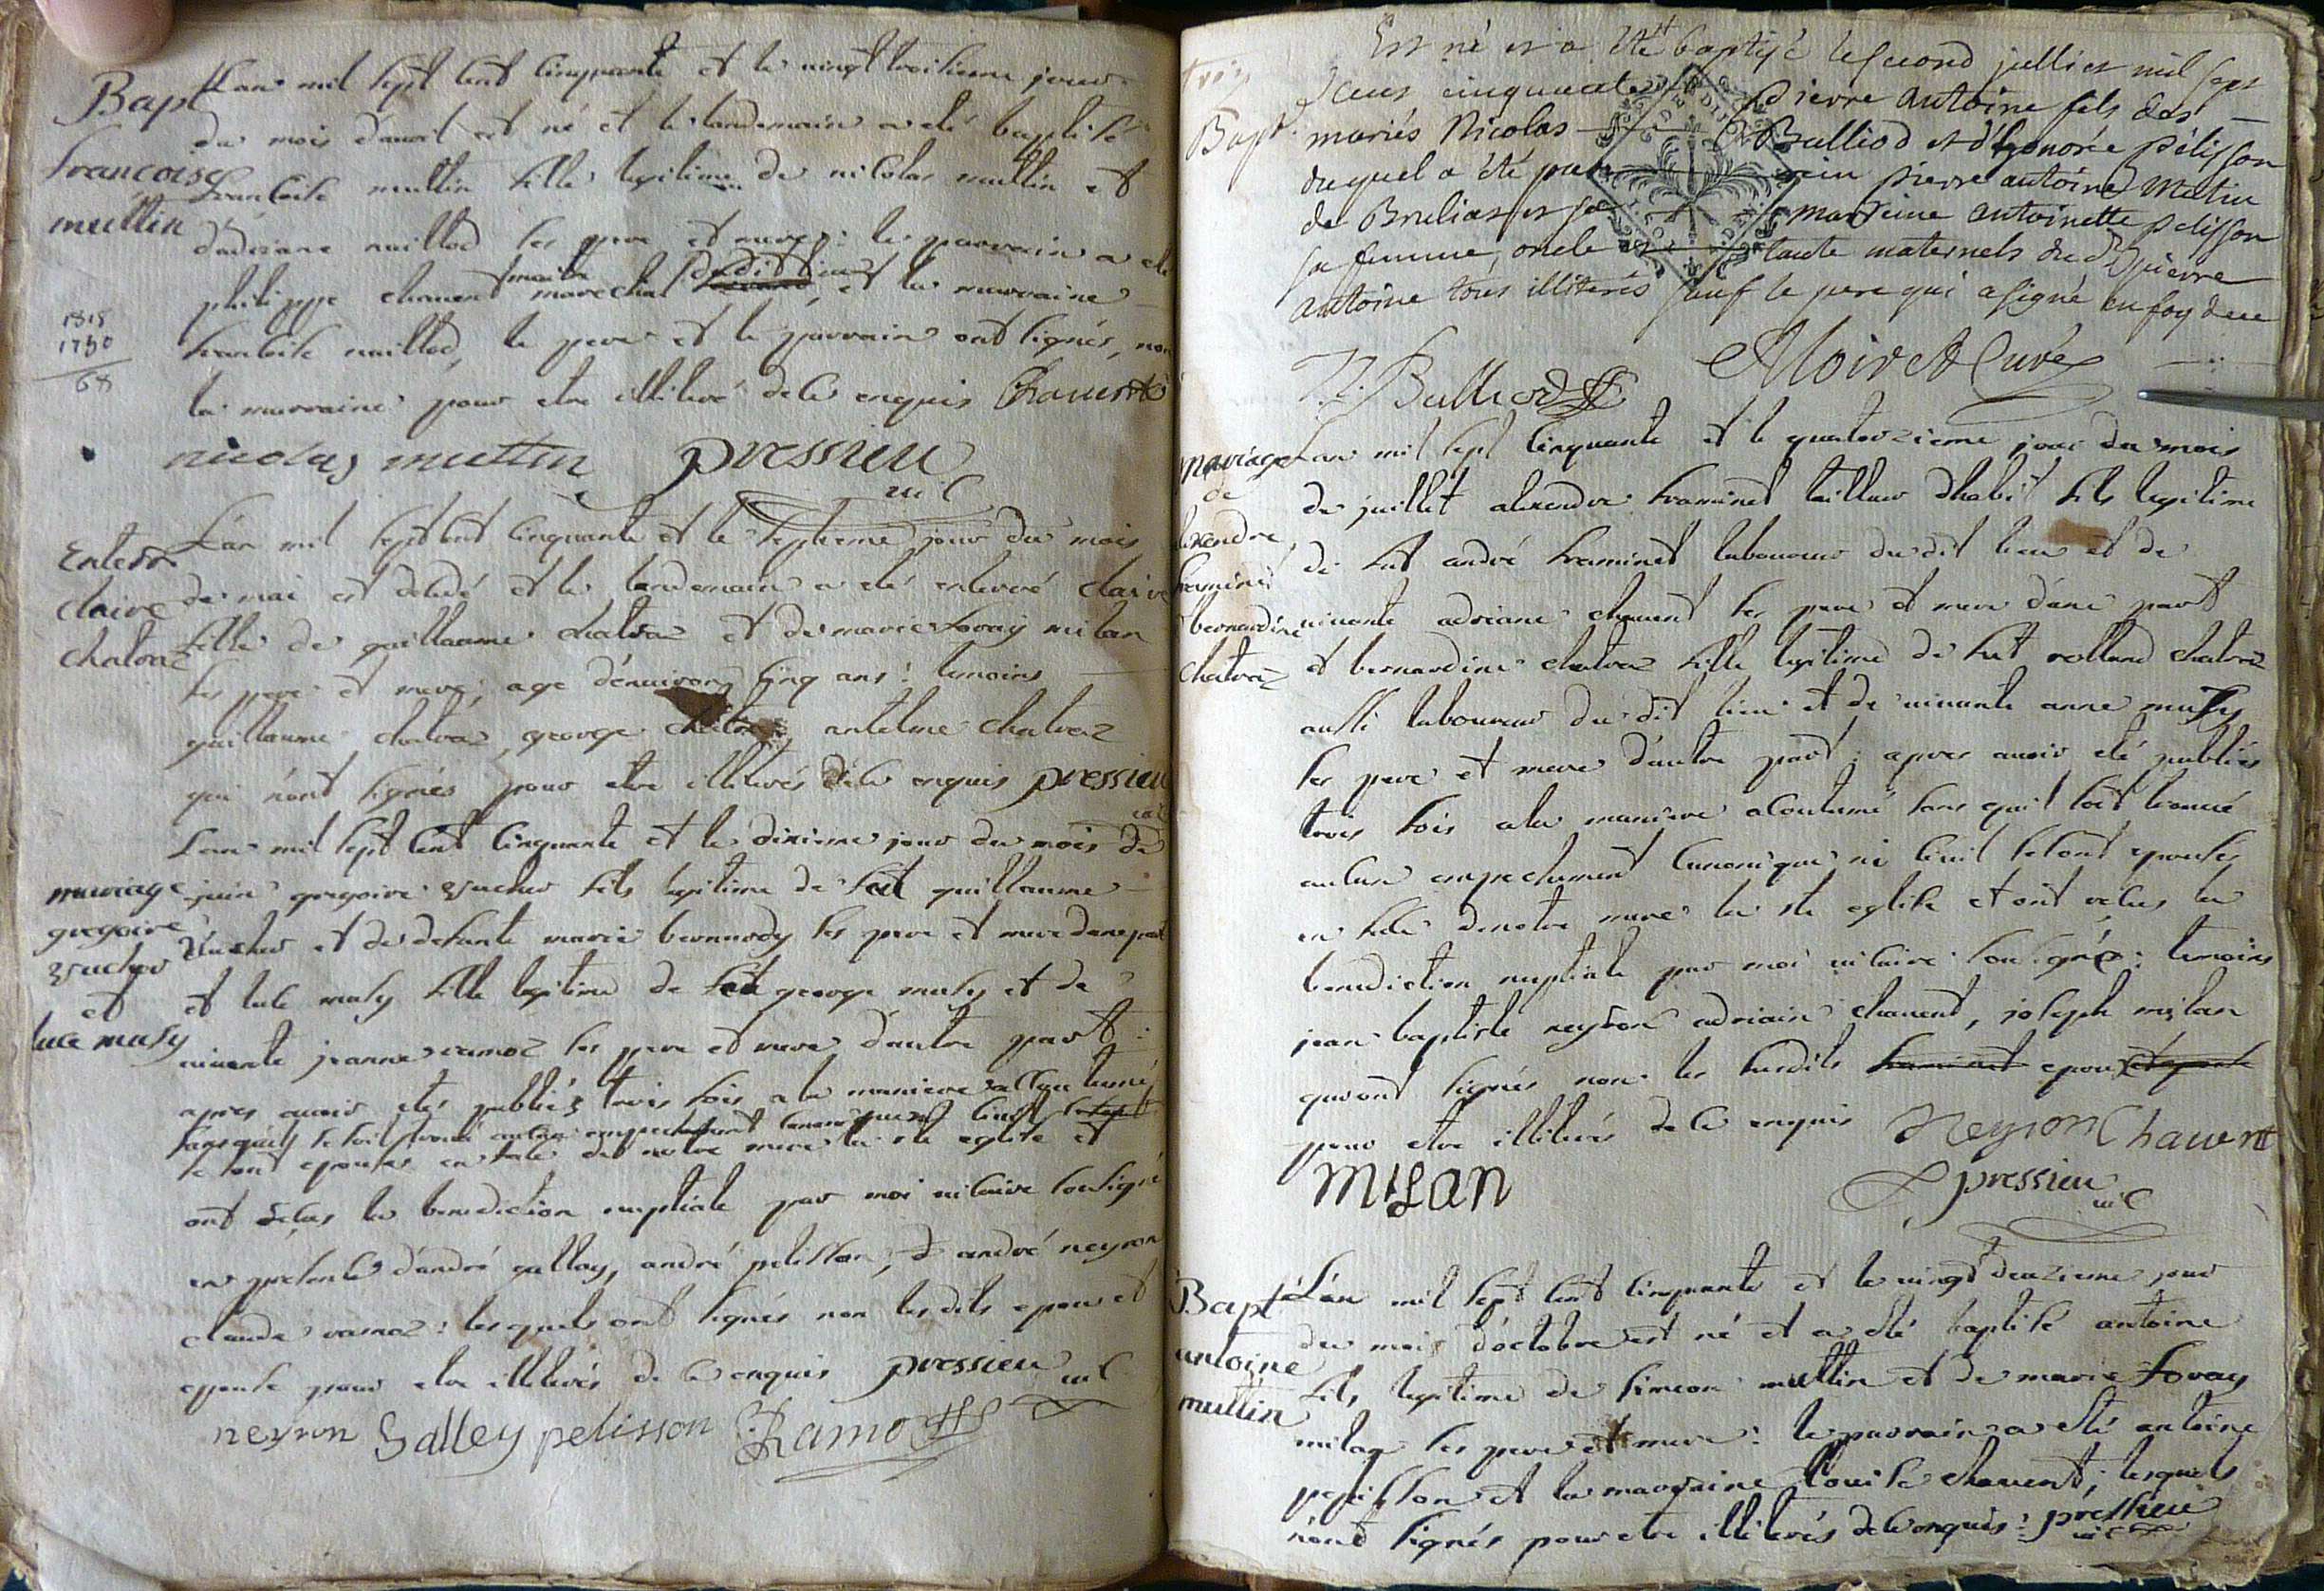 Bapt
francoise
mullin
1818
1750
68
L'an mil sept cent cinquante et le vingt troisieme jour
du mois d'avril est né et le landemain a eté baptisé
francoise mullin fille legitime de nicolas mullin et
d'adriane maillod ses pere et mere: le parrain a eté
philippe chauent maitre marechal dudit lieu, et la marraine
francoise maillod, le pere et le parrain ont signés, non
la marraine pour etre illiteré de ce enquis Chauent
nicolas mullin pressieu
vic
Enterr
claire
chatraz
L'an mil sept cent cinquante et le septieme jour du mois
de mai est decedé et le landemain a eté enterré claire
fille de guillaume chatraz et de marie foray milan
ses pere et mere, age d'environ cinq ans: temoins
guillaume chatraz, george chatraz, antelme chatraz
qui n'ont signés pour etre illiterés de ce enquis pressieu
vic
mariage
gregoire
vucher
et
luce masy
L'an mil sept cent cinquante et le dixieme jour du mois de
juin gregoire vucher fils legitime de fut guillaume
vucher et de defunte marie bernardy ses pere et mere d'une part
et luce masy fille legitime de fut george masy et de
vivante jeanne ramoz ses pere et mere d'autre part:
apres avoir etés publiés trois fois a la maniere accoutumé
sans qu'il se soit trouvé aucun empechement canonique ni civil
se sont epousés en face de notre mere la ste eglise et
ont reçus la benediction nuptiale par moi vicaire soussigné
en presence d'andré galley, andré pelisson, d'andré neyron
claude ramoz: lesquels ont signés non lesdits epoux et
epouse pour etre illiterés de ce enquis pressieu vic
neyron Galley pelisson C: Ramoz
Bapt.
Est né et a été baptisé le second juillet mil sept
cens cinquante Pierre Antoine fils des
mariés Nicolas Bulliod et d'honorée Pélisson
duquel a été parrein pierre antoine Matin
de Brulias et sa marreine Antoinette Pelisson
sa femme, oncle et tante maternels du d. pierre
Antoine tous illiterés sauf le pere qui a signé en foy de ce
N. Bulliod Moiret Curé
mariage
de
alexendre
framinet
bernardine
chatraz
L'an mil sept cinquante et le quatorzieme jour du mois
de juillet alexendre framinet tailleur d'habit fils legitime
de fut andré framinet laboureur du dit lieu et de
vivante adriane chauent ses pere et mere d'une part
et bernardine chatraz fille legitime de fut rolland chatraz
aussi laboureur du dit lieu et de vivante anne masy
ses pere et mere d'autre part; apres avoir eté publiés
trois fois a la maniere acoutumé sans qu'il soit trouvé
aucun empechement canonique ni civil se sont epousés
en face de notre mere la ste eglise et ont reçus la
benediction nuptiale par moi vicaire soussigné: temoins
jean baptiste neyron adriain chauent, joseph milan
qui ont signés non les susdits framinet epoux et epouse
pour etre illiterés de ce enquis Neyron Chauent
MILAN pressieu
vic
Bapt
antoine
mullin
L'an mil sept cent cinquante et le vingt deuzieme jour
du mois d'octobre est né et a eté baptisé antoine
fils legitime de simeon mullin et de marie foray
milan ses pere et mere: le parrain a eté antoine
pelisson et la marraine louise chauent; lesquels
n'ont signés pour etre illiterés de ce enquis: pressieu
vic